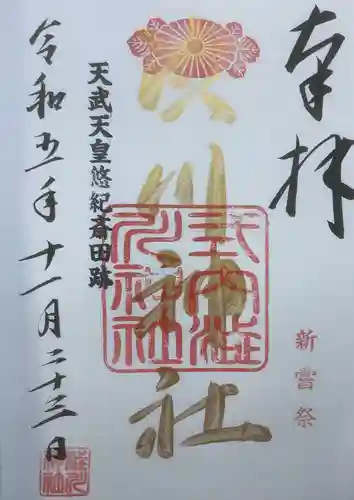 奉拝
新嘗祭
渋川神社
式内澁川神社
天武天皇悠紀斎田跡
令和五年十一月二十三日